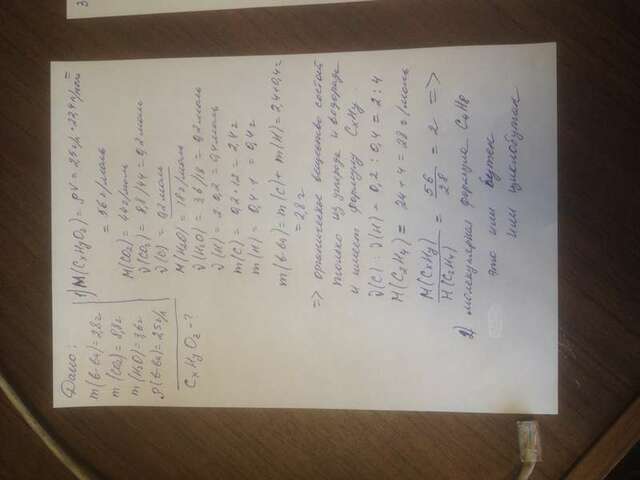 Дано:
m(в-ва)=2,8г
m(CO2)=8,8г
m(H2O)=3,6г
ρ(в-ва)=2,5г/л
CxHyOz-?
1) M(CxHyOz)= ρV = 2,5г/л * 22,4 л/моль =
= 56 г/моль
M(CO2)= 44г/моль
ν(CO2)= 8,8/44 = 0,2 моль
ν(C) = 0,2 моль
M(H2O) = 18г/моль
ν(H2O)= 3,6/18 = 0,2 моль
ν(H) = 2·0,2 = 0,4 моль
m(C) = 0,2 * 12 = 2,4 г
m(H) = 0,4 * 1 = 0,4г
m(в-ва)= m(C)+ m(H)= 2,4+0,4=
= 2,8 г
=> органическое вещество состоит
только из углерода и водорода
и имеет формулу CxHy
ν(C) : ν(H) = 0,2 : 0,4 = 2 : 4
M(C2H4) = 24 + 4 = 28 г/моль
M(CxHy)/M(C2H4) = 56/28 = 2 =>
2) молекулярная формула C4H8
это или бутен
или циклобутан
3